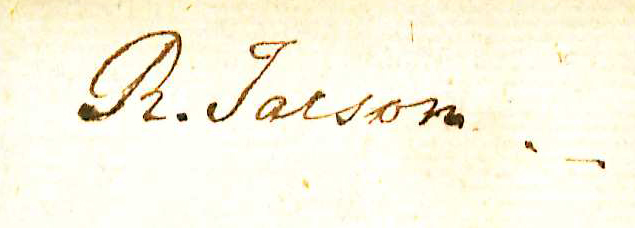 R. Jarson. -